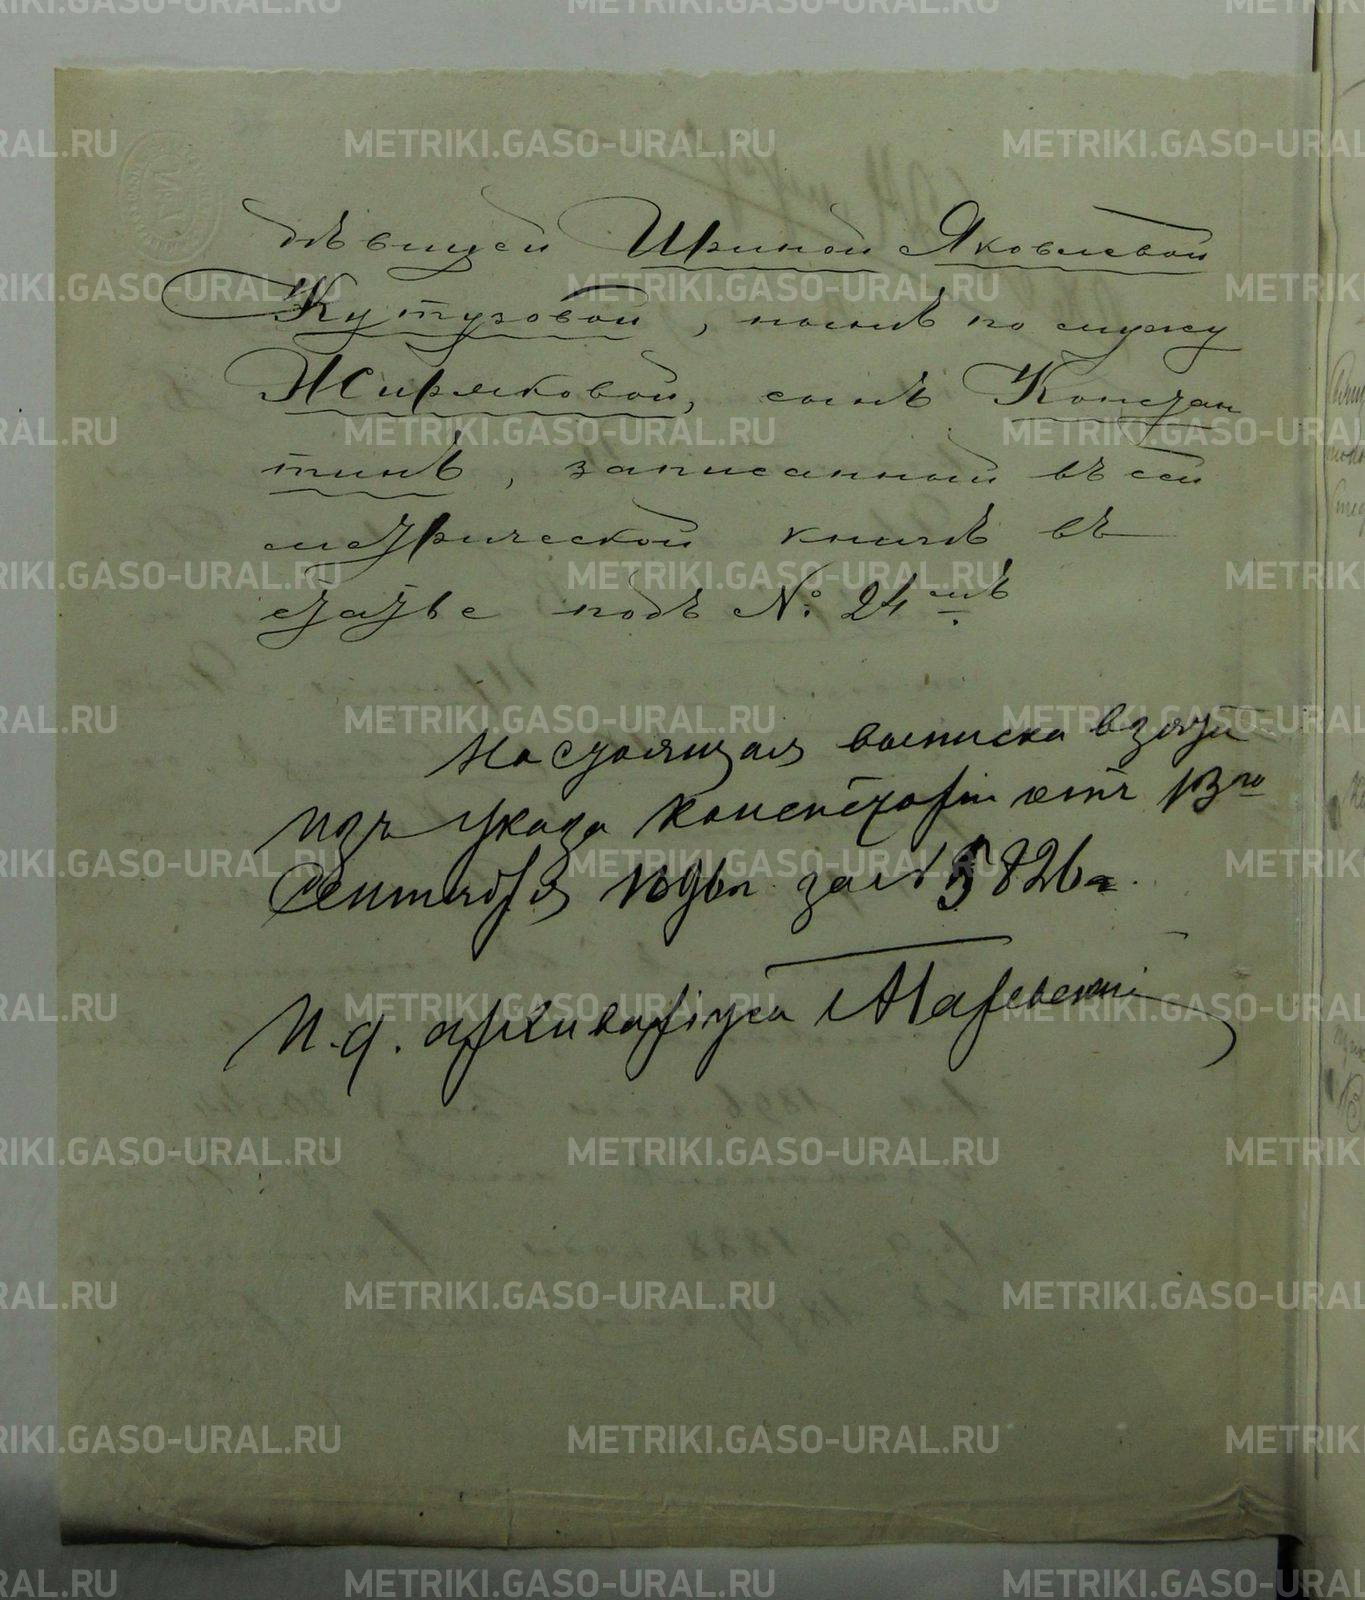 дѣвицей Ириной Яковлевой
Кутузовой, нынѣ по мужу
Жиряковой, сынъ Констан
тинъ, записанный въ сей
метрической книгѣ въ
статьѣ подъ № 24 мъ
Настоящая выписка взята
изъ указа консисторіи отъ 13го
Сентября 1896 г. за № 5826 м.
И. д. архиваріуса
METRIKI.GASO-URAL.RU